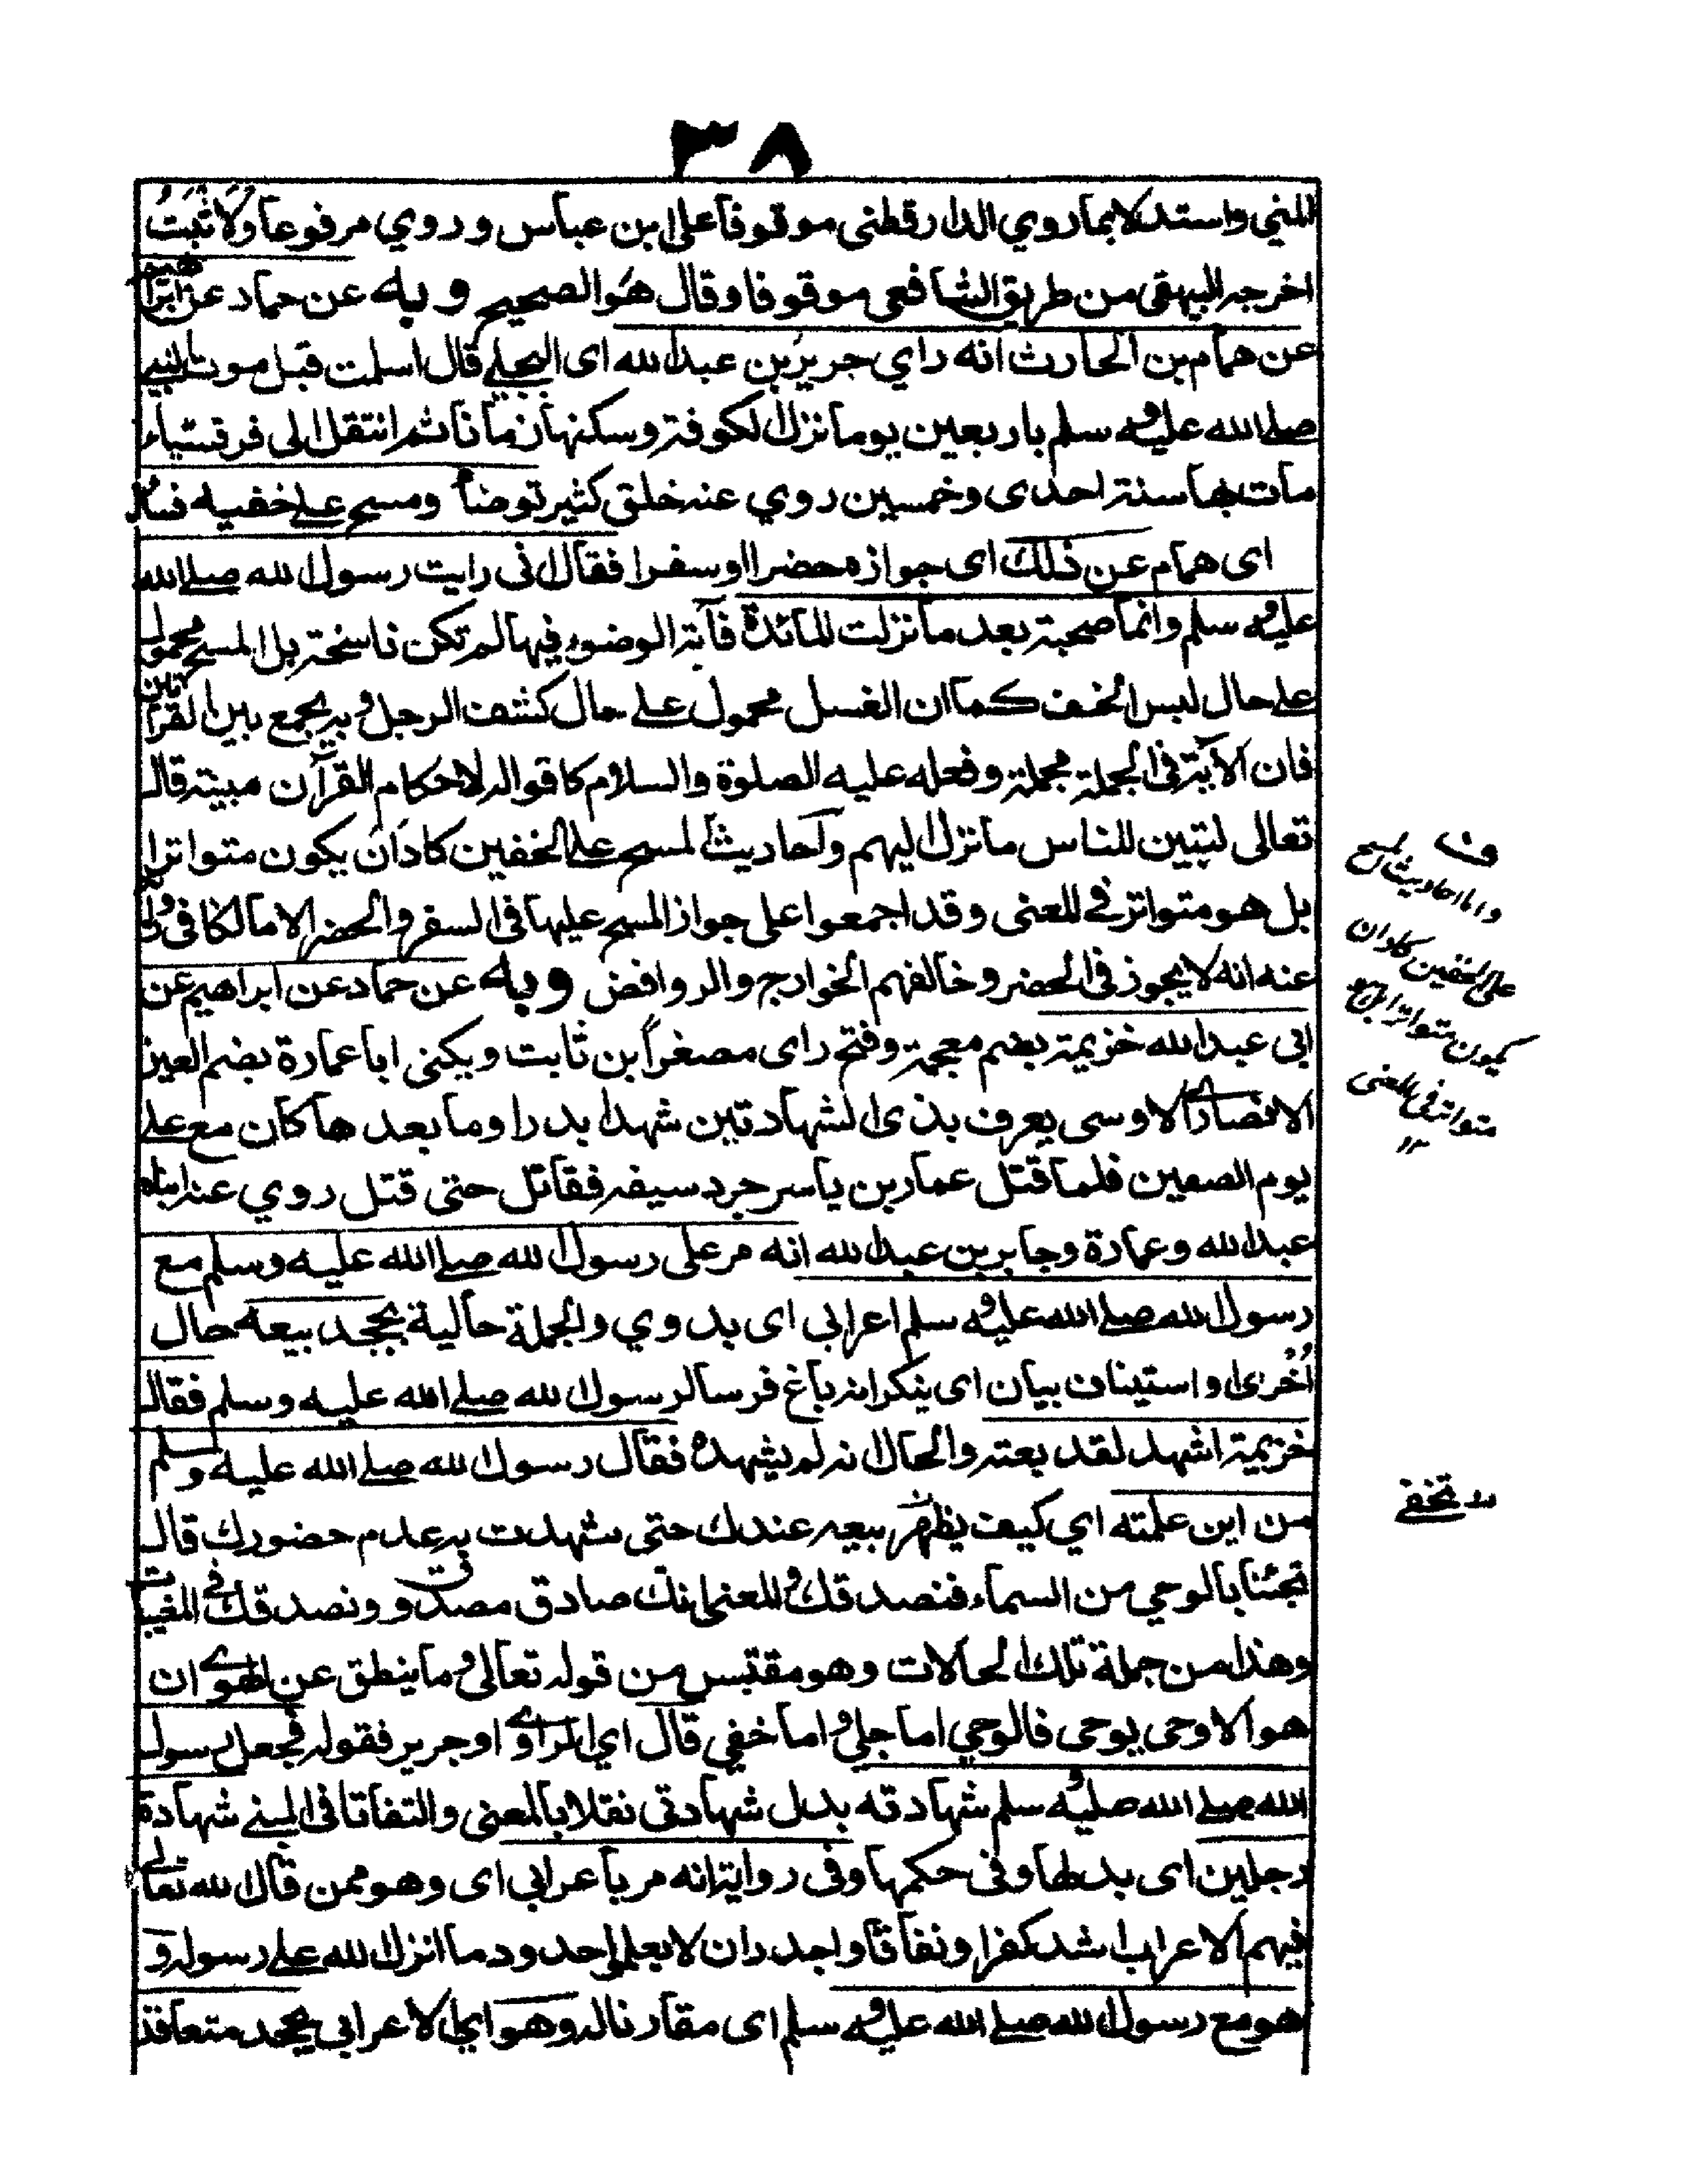 ٣٨
المني واستدلا بما روي الدارقطنى موقوفا على ابن عباس وروي مرفوعا ولا ثبت
اخرجه البيهقى من طريق الشافعى موقوفا وقال هو الصحيح وبه عن حماد عن ابراهيم
عن همام بن الحارث انه راي جرير بن عبد الله اى البجلي قال اسلمت قبل موت النبي
صلى الله عليه وسلم باربعين يوما نزل الكوفة وسكنها زمانا ثم انتقل الى قرقيسياء
مات بها سنة احدى وخمسين روي عنه خلق كثير توضأ ومسح على خفيه فسأله
اى همام عن ذلك اى جوازه حضرا او سفرا فقال انى رايت رسول الله صلى الله
عليه وسلم وانما صحبته بعد ما نزلت المائدة فآية الوضوء فيها لم تكن ناسخة بل المسح محمول
على حال لبس الخف كما ان الغسل محمول على حال كشف الرجل وبه يجمع بين القرأتين
فان الآية فى الجملة مجملة وفعله عليه الصلوة والسلام كاقواله لاحكام القرآن مبينة قال
تعالى لتبين للناس ما نزل اليهم واحاديث المسح على الخفين كاد ان يكون متواترا
بل هو متواتر في المعنى وقد اجمعوا على جواز المسح عليها فى السفر والحضر الا مالكا فى رواية
عنه انه لا يجوز فى الحضر وخالفهم الخوارج والروافض وبه عن حماد عن ابراهيم عن
ابى عبد الله خزيمة بضم معجمة وفتح راى مصغرا بن ثابت ويكنى ابا عمارة بضم العين
الانصاري الاوسى يعرف بذى الشهادتين شهد بدرا وما بعدها كان مع علي
يوم الصفين فلما قتل عمار بن ياسر جرد سيفه فقاتل حتى قتل روي عنه ابناه
عبد الله وعمارة وجابر بن عبد الله انه مر على رسول الله صلى الله عليه وسلم مع
رسول الله صلى الله عليه وسلم اعرابى اى بدوي والجملة حالية يجحد بيعه حال
اخرى او استيناف بيان اى ينكر انه باغ فرسا لرسول الله صلى الله عليه وسلم فقال
خزيمة اشهد لقد بعته والحال انه لم يشهده فقال رسول الله صلى الله عليه وسلم
من اين علمته اي كيف يظهر بيعه عندك حتى شهدت به عدم حضورك قال
تجئنا بالوحي من السماء فنصدقك والمعنى انك صادق مصدوق ونصدقك فى المغيبات
وهذا من جملة تلك الحالات وهو مقتبس من قوله تعالى وما ينطق عن الهوى ان
هو الا وحى يوحى فالوحي اما جلي واما خفي قال اي الراوي او جرير فقوله فجعل رسول
الله صلى الله عليه وسلم شهادته بدل شهادتى نقلا بالمعنى والتفاتا فى المبنى شهادة
رجلين اى بدلها وفى حكمها وفى رواية انه مر باعرابى اى وهو ممن قال الله تعالى
فيهم الاعراب اشد كفرا ونفاقا واجدر ان لا يعلموا حدود ما انزل الله على رسوله و
هو مع رسول الله صلى الله عليه وسلم اى مقارنا له وهو اي الاعرابى يجحد متعاقد
واما احاديث المسح
على الخفين كاد ان
يكون متواترا بل هو
متواتر فى المعنى
١٢
تخفي